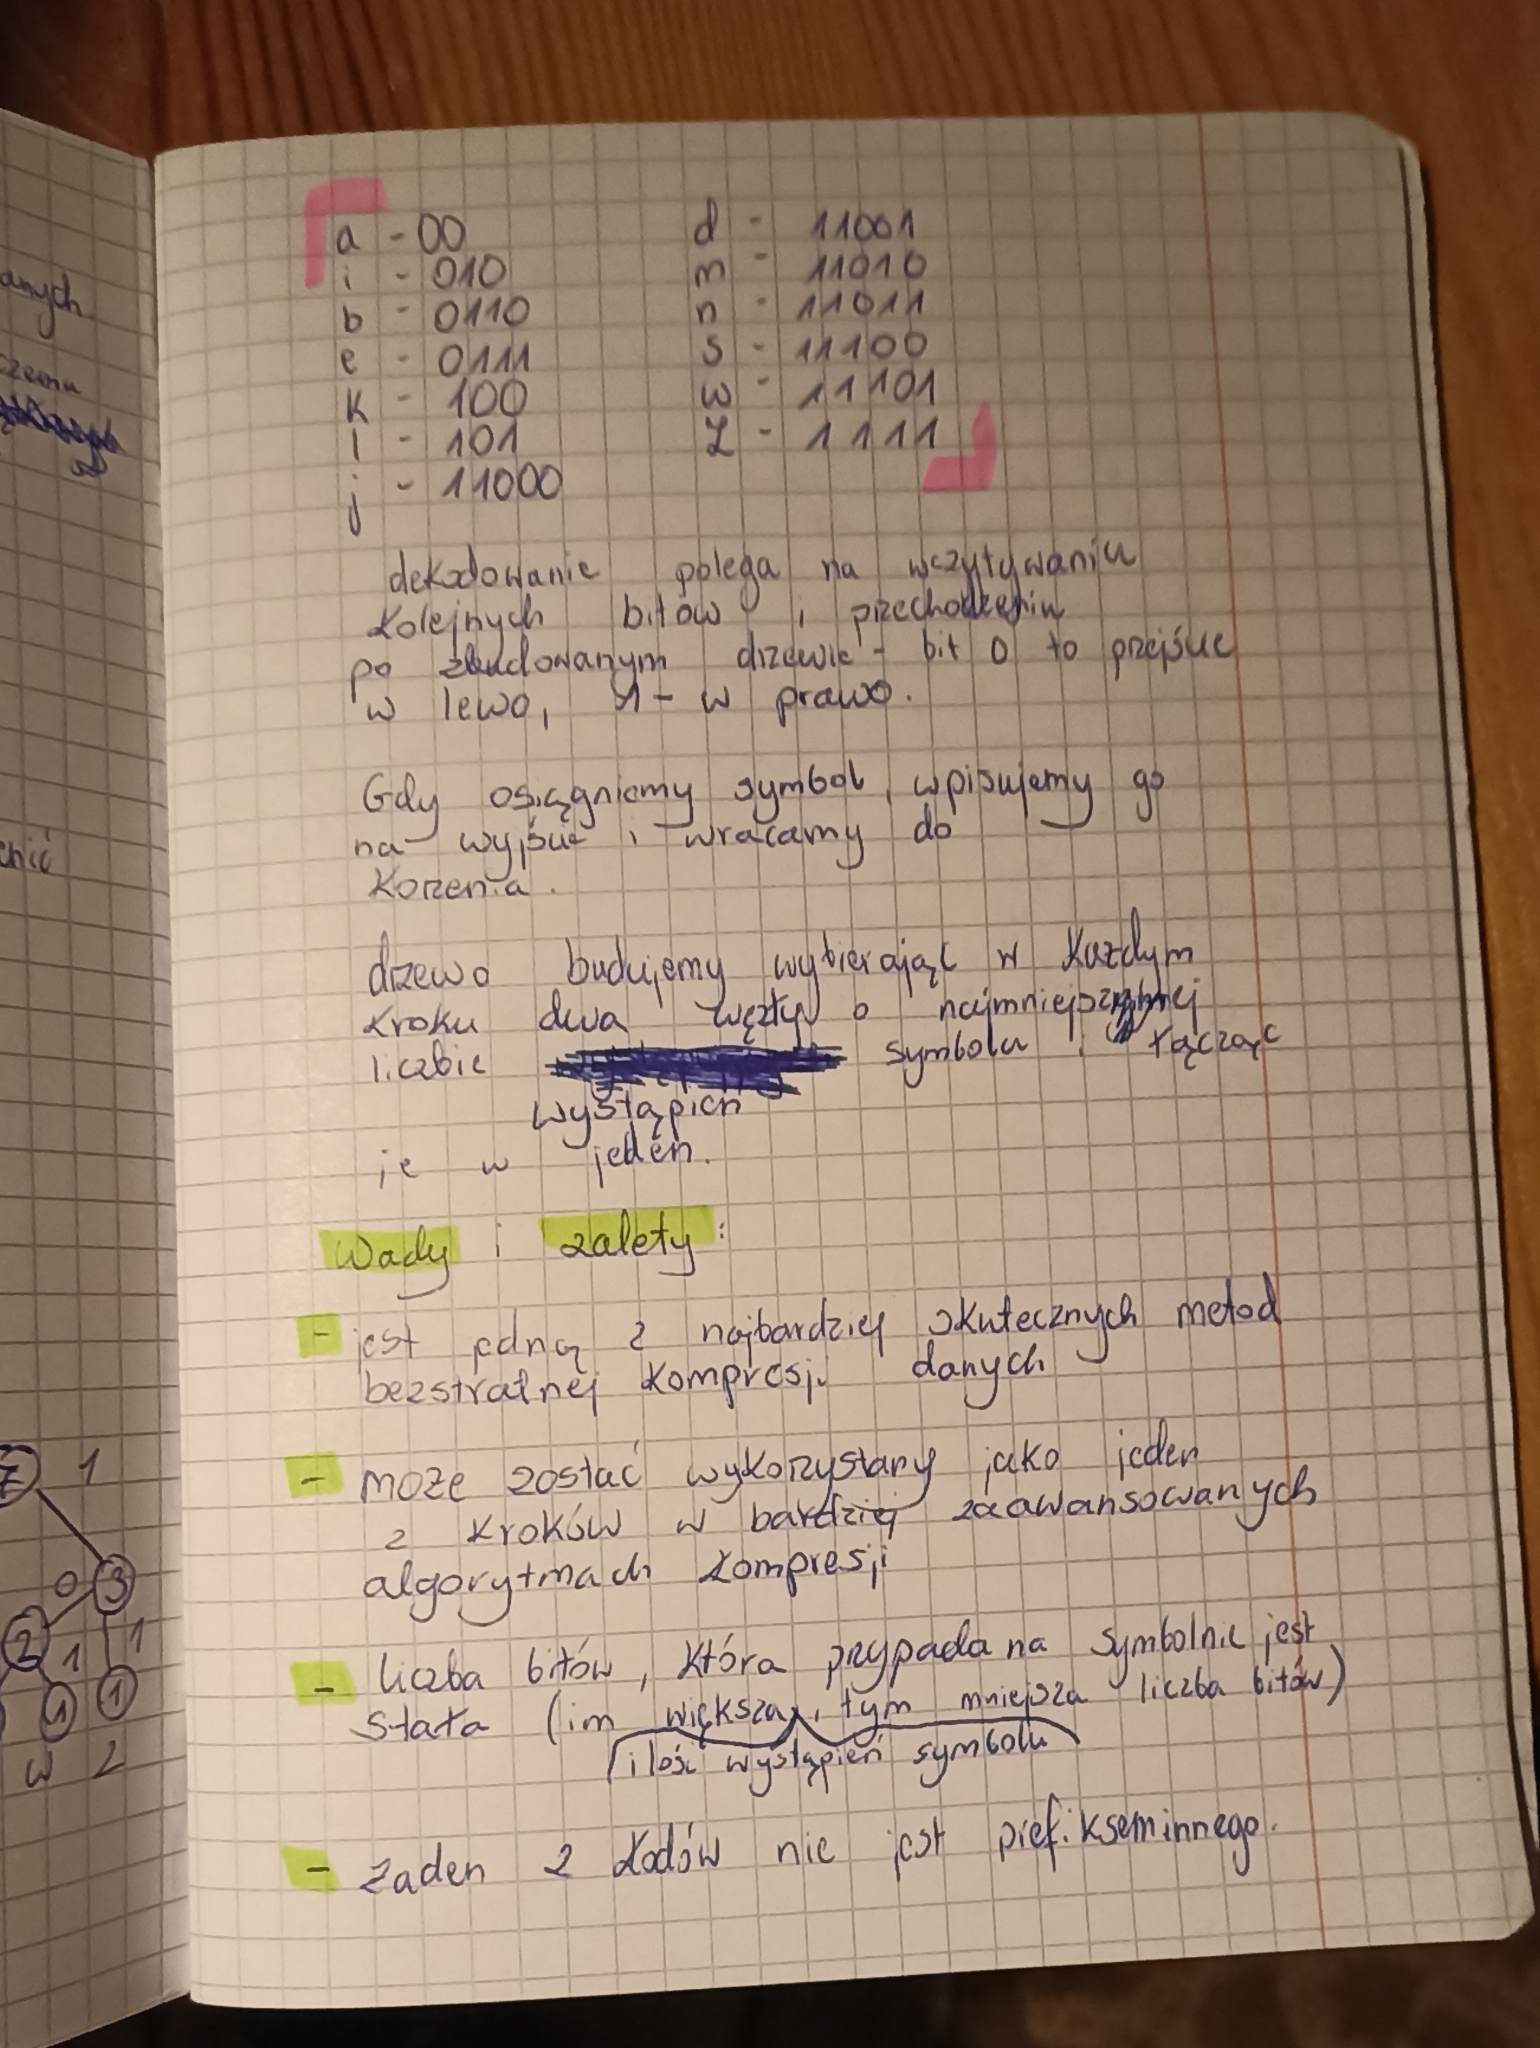 anych
czemu
chić
1
0 3
2 1 1
1 1
w z
a - 00
i - 010
b - 0110
e - 0111
k - 100
l - 101
j - 11000
d - 11001
m - 11010
n - 11011
s - 11100
w - 11101
z - 1111
dekodowanie polega na wczytywaniu
kolejnych bitów i przechodzeniu
po zbudowanym drzewie - bit 0 to przejście
w lewo, 1 - w prawo.
Gdy osiągniemy symbol, wpisujemy go
na wyjście i wracamy do
korzenia.
drzewo budujemy wybierając w każdym
kroku dwa węzły o najmniejszej
liczbie symbolu i łącząc
wystąpień
je w jeden.
Wady i zalety:
- jest jedną z najbardziej skutecznych metod
bezstratnej kompresji danych
- może zostać wykorzystany jako jeden
z kroków w bardziej zaawansowanych
algorytmach kompresji
- liczba bitów, która przypada na symbol nie jest
stała (im większa, tym mniejsza liczba bitów)
ilość wystąpień symbolu
- żaden z kodów nie jest prefiksem innego.